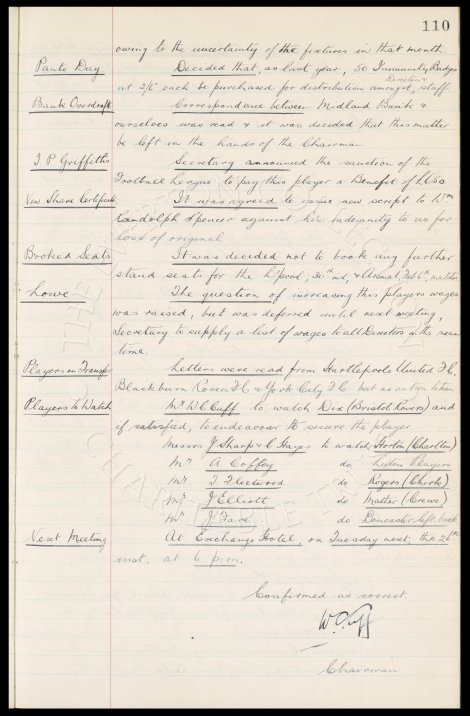 110
owing to the uncertainty of the fixtures in that month.
Panto Day Decided that, as last year, 50 Immunity Badges
at 2/6 each be purchased for distributions amongst, Directors & staff
Bank Overdraft Correspondence between Midland Bank &
ourselves was read & it was decided that this matter
be left in the hands of the Chairman.
T P Griffiths Secretary announced the sanction of the
Football League to pay this player a Benefit of £650
New Share Certificate It was agreed to issue new script to Wm
Randolph Spencer against his indemnity to us for
loss of original
Booked Seats It was decided not to book any further
stand seats for the L'pool, 30th inst, & Arsenal, Feb 6th, matches
Lowe The question of increasing this players wages
was raised, but was deferred until next meeting,
Secretary to supply a list of wages to all Directors in the mean
time.
Players on Transfer Letters were read from Hartlepools United F.C.
Blackburn Rovers F.C & York City F.C but no action taken
Players to Watch Mr W.C. Cuff to watch Dix (Bristol Rovers) and
if satisfied, to endeavour to secure the player
Messrs J Sharp & C Hayes to watch Horton (Charlton)
Mr A Coffey do Luton Players
Mr T Fleetwood do Rogers (Chirk)
Mr J Elliott do Mather (Crewe)
Mr J Fare do Doncaster left back
Next Meeting At Exchange Hotel, on Tuesday next, the 26th
inst, at 6 p.m.
Confirmed as correct
W C Cuff
Chairman